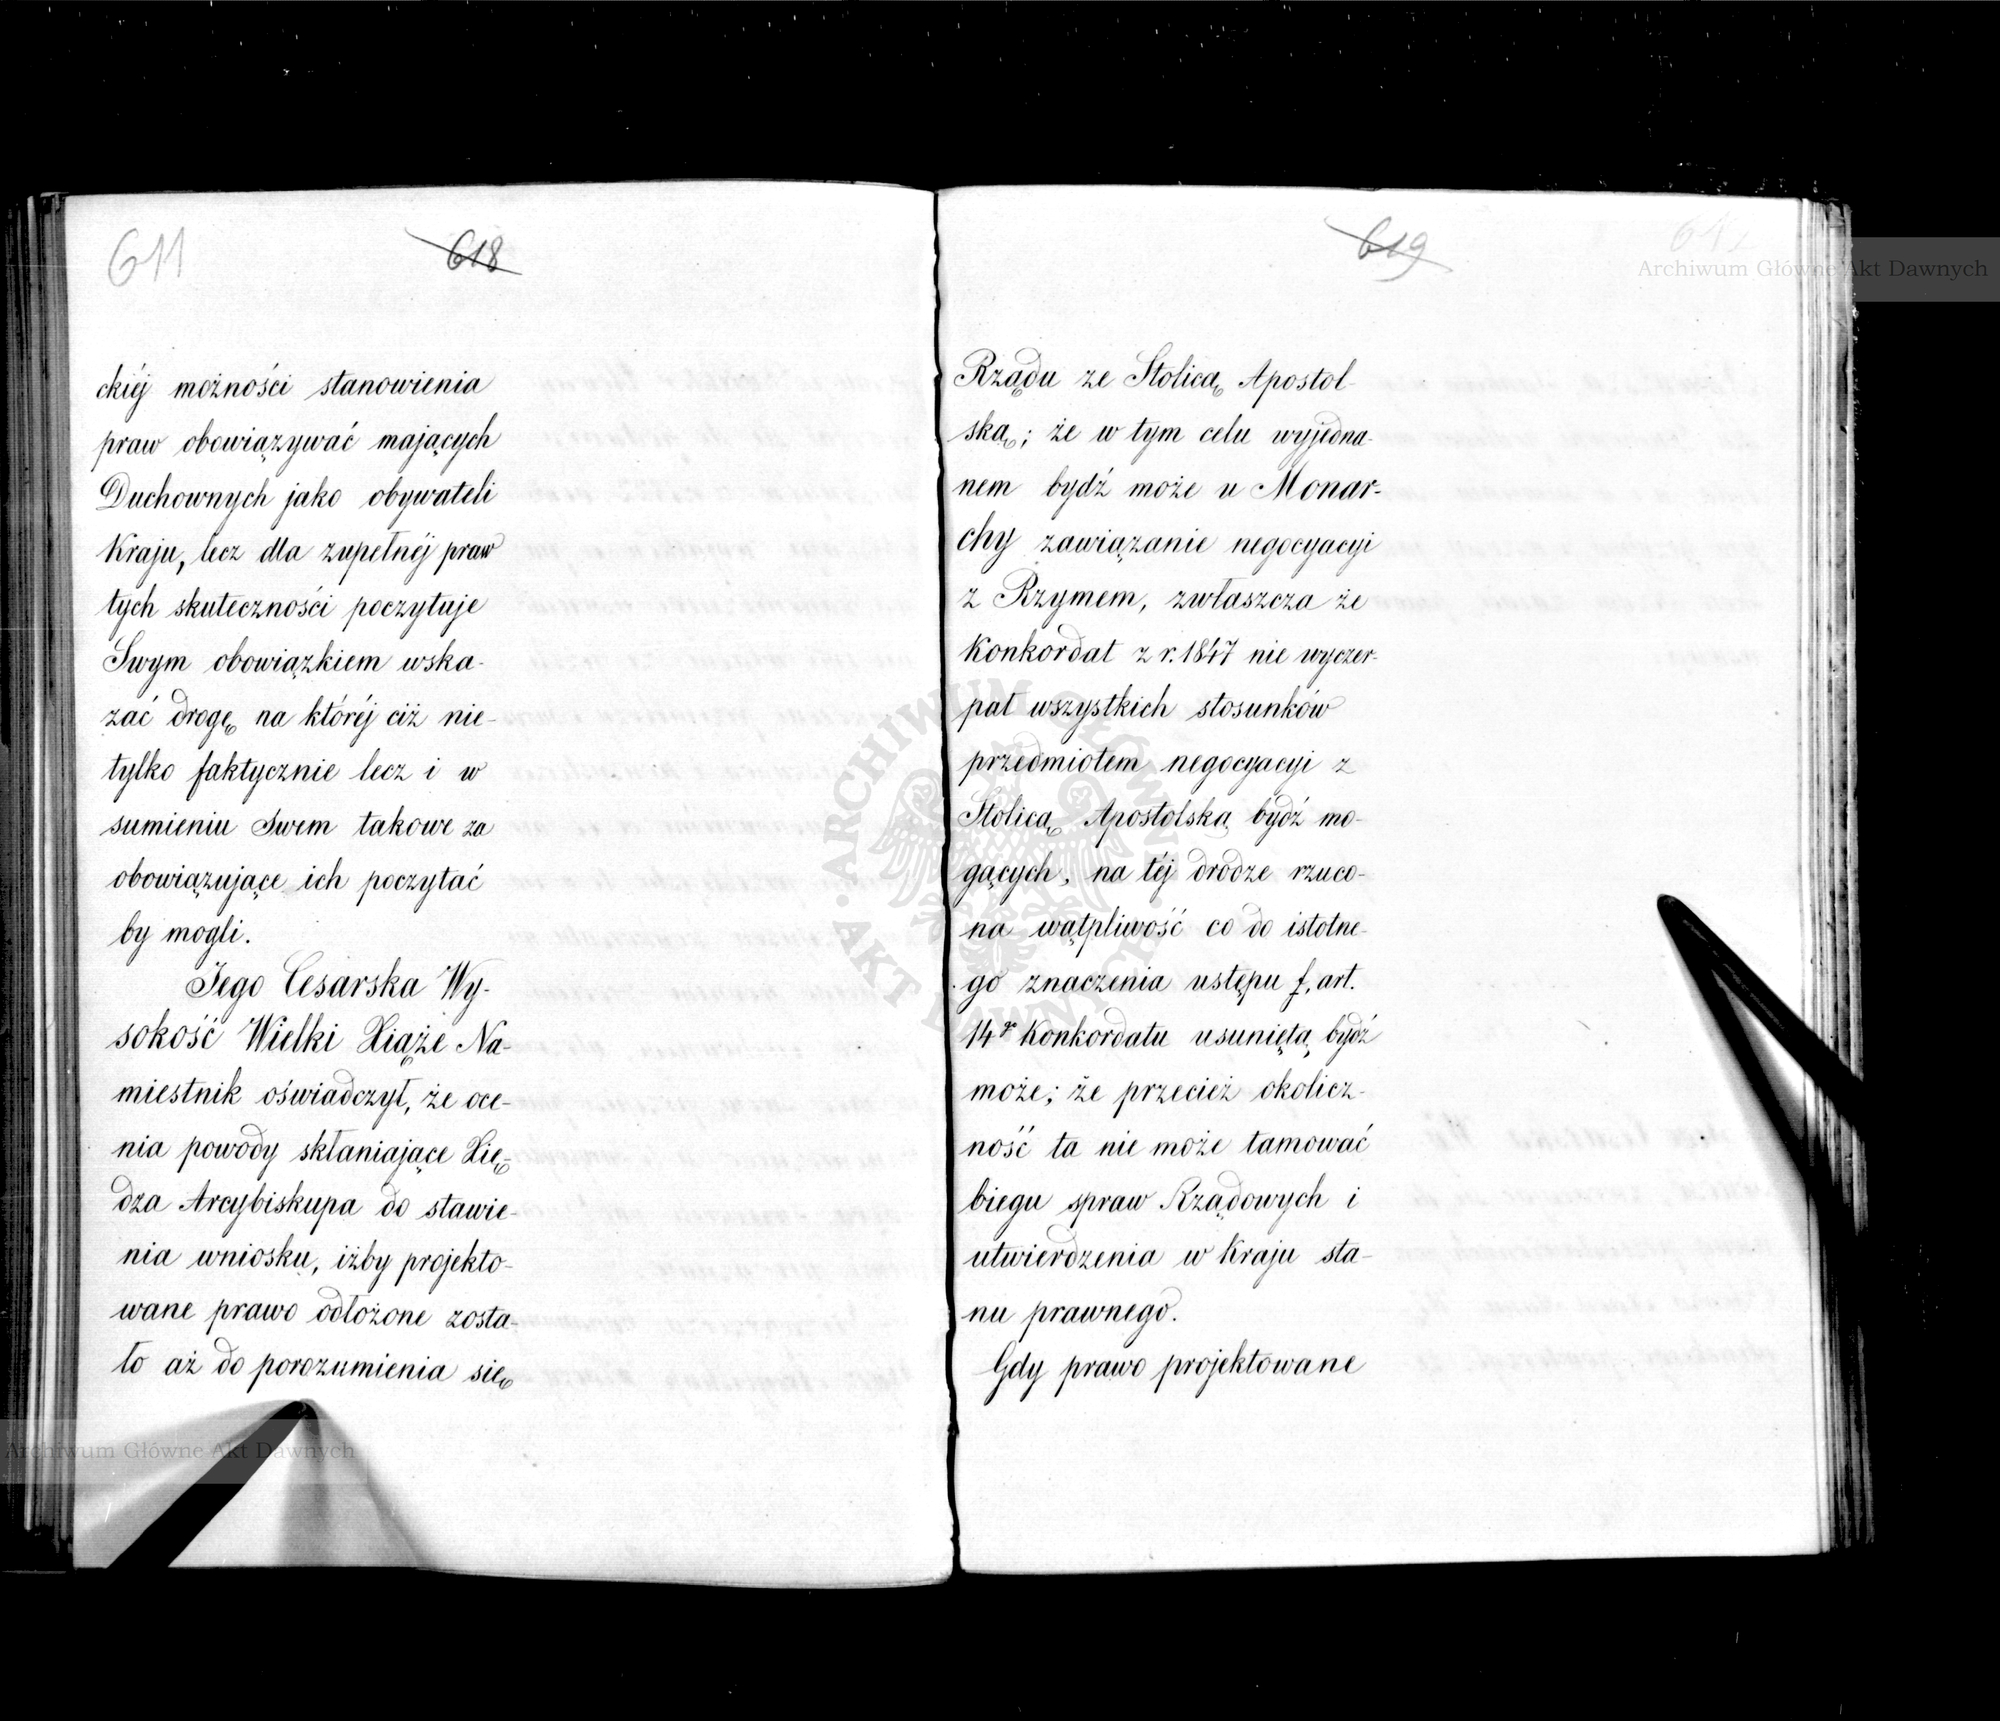 611
618
ckiéj możności stanowienia
praw obowiązywać mających
Duchownych jako obywateli
Kraju, lecz dla zupełnéj praw
tych skuteczności poczytuje
Swym obowiązkiem wska-
zać drogę na któréj ciż nie-
tylko faktycznie lecz i w
sumieniu Swem takowe za
obowiązujące ich poczytać
by mogli.
Jego Cesarska Wy-
sokość Wielki Xiąże Na-
miestnik oświadczył, że oce-
nia powody skłaniające Xię-
dza Arcybiskupa do stawie-
nia wniosku, iżby projekto-
wane prawo odłożone zosta-
ło aż do porozumienia się
619
612
Rządu ze Stolicą Apostol-
ską; że w tym celu wyjedna-
nem bydź może u Monar-
chy zawiązanie negocyacyi
z Rzymem, zwłaszcza że
Konkordat z r. 1847 nie wyczer-
pał wszystkich stosunków
przedmiotem negocyacyi z
Stolicą Apostolską bydź mo-
gących, na téj drodze rzuco-
na wątpliwość co do istotne-
go znaczenia ustępu f, art.
14º Konkordatu usuniętą bydź
może; że przecież okolicz-
ność ta nie może tamować
biegu spraw Rządowych i
utwierdzenia w Kraju sta-
nu prawnego.
Gdy prawo projektowane
Archiwum Główne Akt Dawnych
Archiwum Główne Akt Dawnych
ARCHIWUM GŁÓWNE AKT DAWNYCH